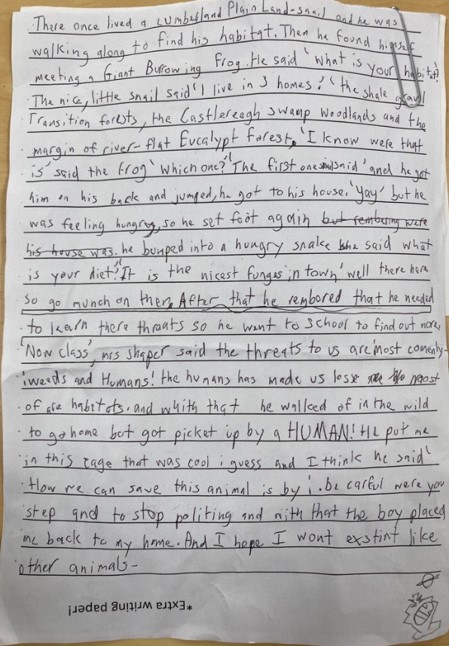 There once lived a cumberland Plain Land-snail and he was
walking along to find his habitat. Then he found himself
meeting a Giant Burrowing Frog. He said 'what is your habitat?'
The nice, little snail said 'I live in 3 homes!' 'the shale gravel
Transition forests, the Castlereagh swamp woodlands and the
margin of river-flat Eucalypt forest. 'I know were that
is' said the frog 'which one?' 'The first one said' and he got
him on his back and jumped, he got to his house. 'yay' but he
was feeling hungry, so he set foot again but rembering were
his house was. he bumped into a hungry snake he said what
is your diet?' 'It is the nicest funges in town' well there here
so go munch on them. After that he rembored that he needed
to learn there threats so he want to school to find out more.
'Now class', mrs shaper said the threats to us are most comenly-
weeds and Humans! the humans has made us lose most
of are habitots. and whith that he walked of in the wild
to go home bot got picket up by a HUMAN! He put me
in this cage that was cool i guess and I think he said'
How we can save this animal is by i. be carful were you
step and to stop politing and with that the boy placed
me back to my home. And I hope I wont exstint like
other animals-
*Extra writing paper!